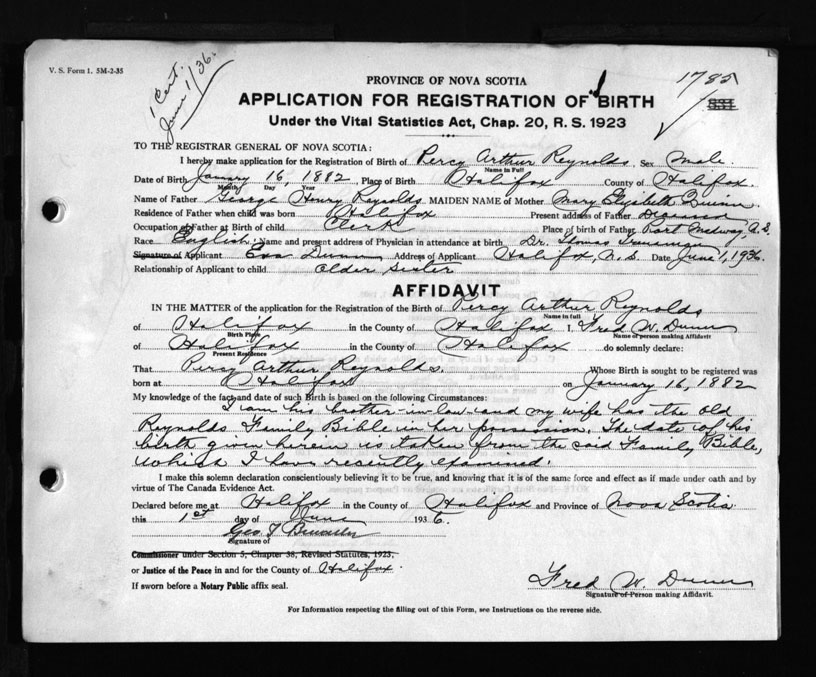 V. S. Form 1. 5M-2-35
1 Cert.
June 1/36.
PROVINCE OF NOVA SCOTIA
1785
APPLICATION FOR REGISTRATION OF BIRTH
831
Under the Vital Statistics Act, Chap. 20, R. S. 1923
TO THE REGISTRAR GENERAL OF NOVA SCOTIA:
I hereby make application for the Registration of Birth of Percy Arthur Reynolds, Sex Male.
Name in Full
Date of Birth January 16, 1882 Place of Birth Halifax County of Halifax.
Month Day Year
Name of Father George Henry Reynolds MAIDEN NAME of Mother Mary Elizabeth
Residence of Father when child was born Halifax Present address of Father Deceased
Occupation of Father at Birth of child Clerk Place of birth of Father Port Medway, N.S.
Race English Name and present address of Physician in attendance at birth Dr. Thomas
Signature of Applicant Eva Dunn Address of Applicant Halifax, N.S. Date June 1, 1936.
Relationship of Applicant to child Older Sister
AFFIDAVIT
IN THE MATTER of the application for the Registration of the Birth of Percy Arthur Reynolds
Name in full
of Halifax in the County of Halifax I, Fred W. Dunn
Birth Place Name of person making Affidavit
of Halifax in the County of Halifax do solemnly declare:
Present Residence
That Percy Arthur Reynolds. Whose Birth is sought to be registered was
born at Halifax on January 16, 1882
My knowledge of the fact and date of such Birth is based on the following Circumstances:
I am his brother-in-law and my wife has the old
Reynolds Family Bible in her possession. The date of his
birth given herein is taken from the said Family Bible,
which I have recently examined.
I make this solemn declaration conscientiously believing it to be true, and knowing that it is of the same force and effect as if made under oath and by
virtue of The Canada Evidence Act.
Declared before me at Halifax in the County of Halifax and Province of Nova Scotia
this 1st day of June 1936.
Geo. T
Signature of
Commissioner under Section 5, Chapter 38, Revised Statutes, 1923,
or Justice of the Peace in and for the County of Halifax.
If sworn before a Notary Public affix seal.
Fred W. Dunn
Signature of Person making Affidavit.
For Information respecting the filling out of this Form, see Instructions on the reverse side.